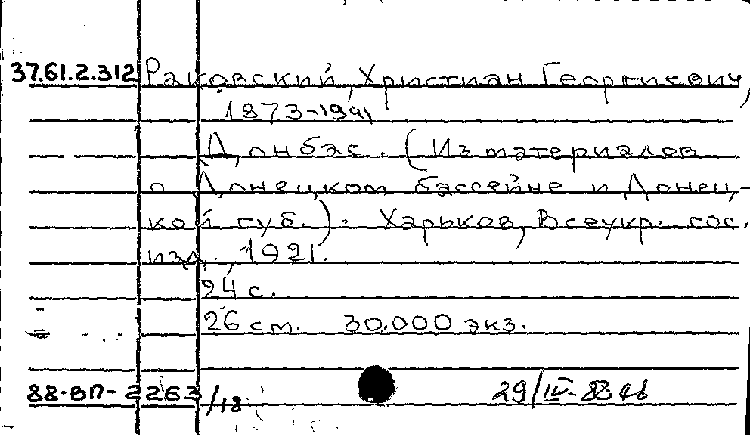 37.61.2.312 Раковский, Христиан Георгиевич,
1873-1941
Донбас. (Из материалов
о Донецком бассейне и Донец-
кой губ.). Харьков, Всеукр. гос.
изд., 1921.
94 с.
26 см. 30.000 экз.
88-ВП-2263/18 29/IV-88